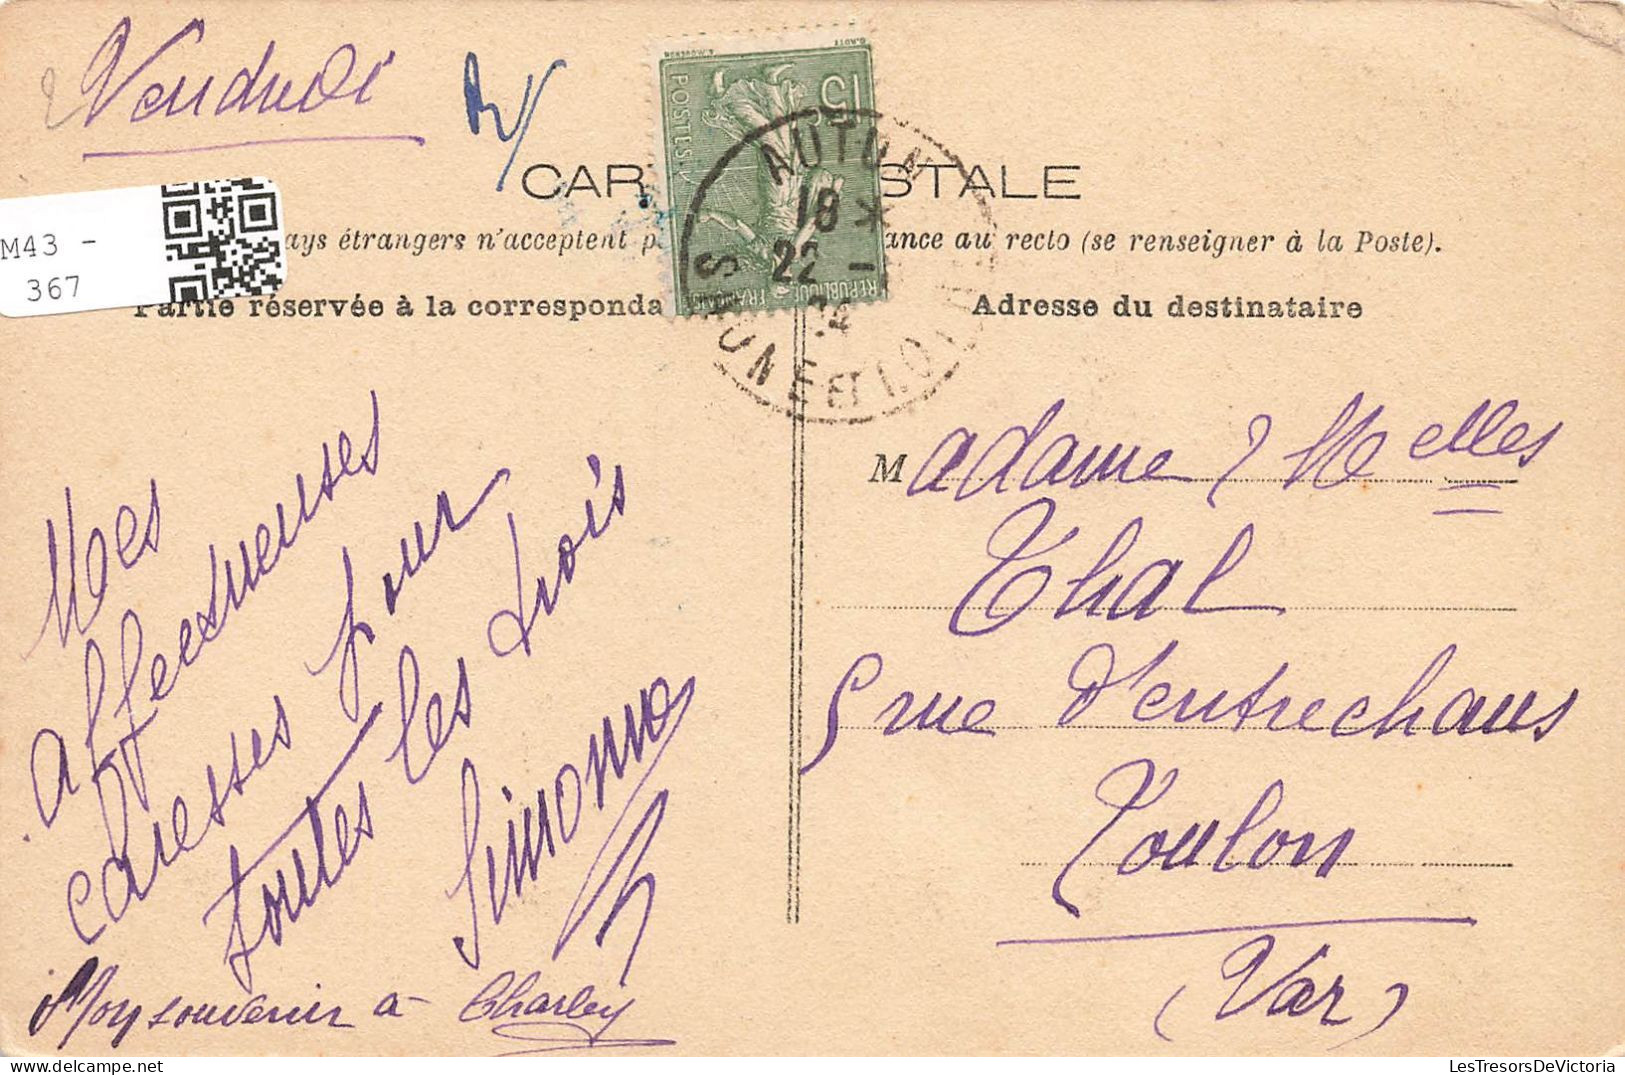 Vendredi
CARTE POSTALE
M43 -
367
ays étrangers n'acceptent p
ance au recto (se renseigner à la Poste).
Partie réservée à la corresponda
Adresse du destinataire
15c
POSTES
REPUBLIQUE FRANÇAISE
AUTUN
18 *
22 - 1
24
SAONE ET LOIRE
Mes
affectueuses
caresses pour
toutes les trois
Simone
Mon souvenir à Charley
Madame & Melles
Thal
5 rue d'entrechaus
Toulon
(Var)
LesTresorsDeVictoria.com